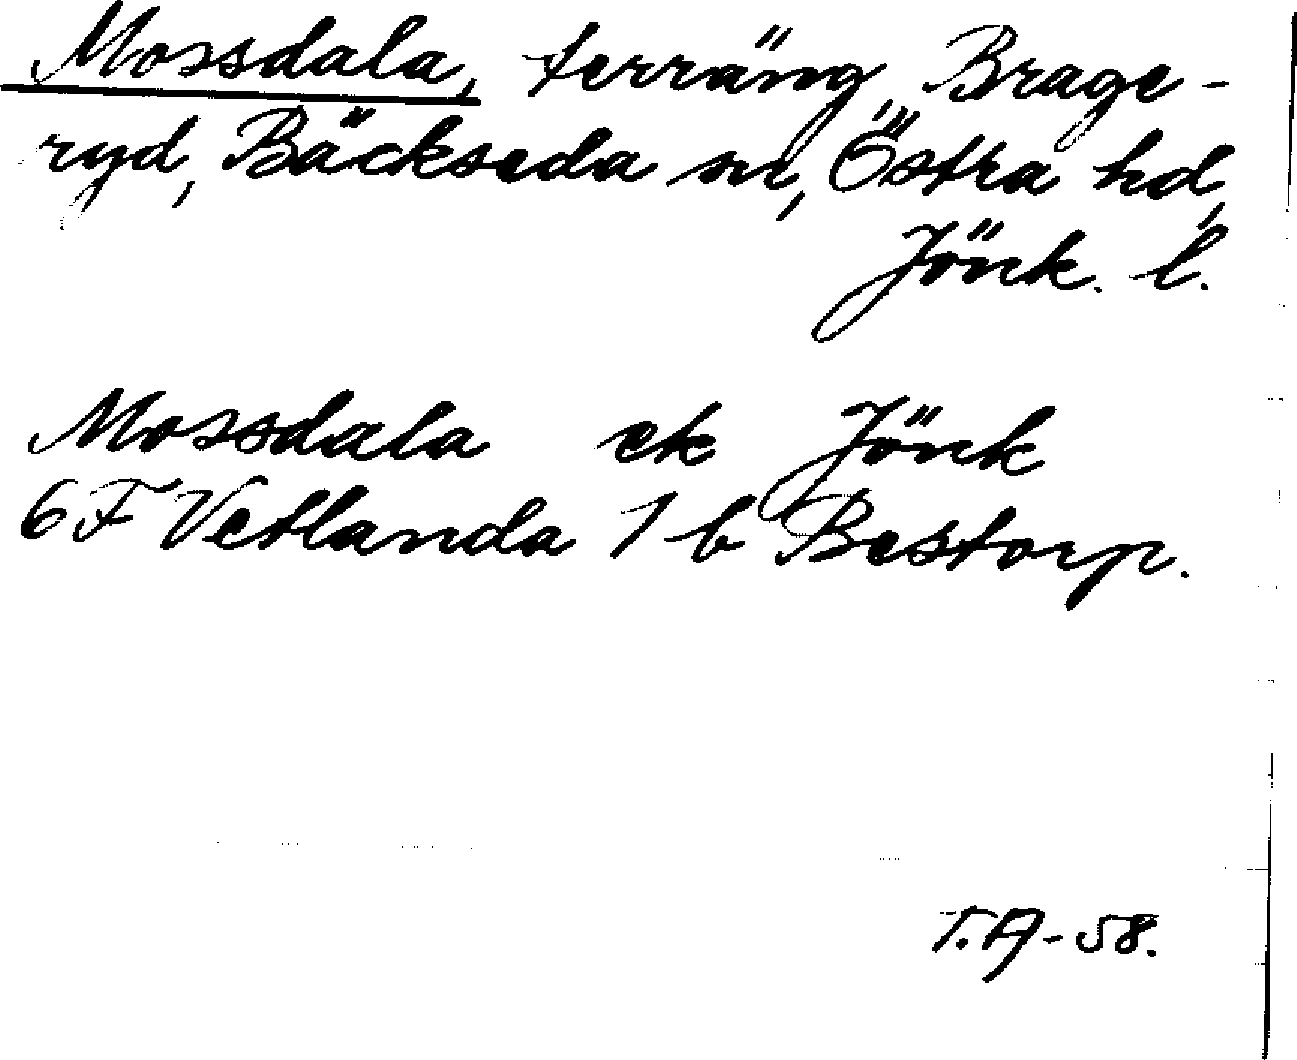 Mossdala, terräng, Brage-
ryd, Bäckseda sn, Östra hd,
Jönk. l.
Mossdala ek Jönk
6 F Vetlanda 1 b Bestorp.
T.A-58.